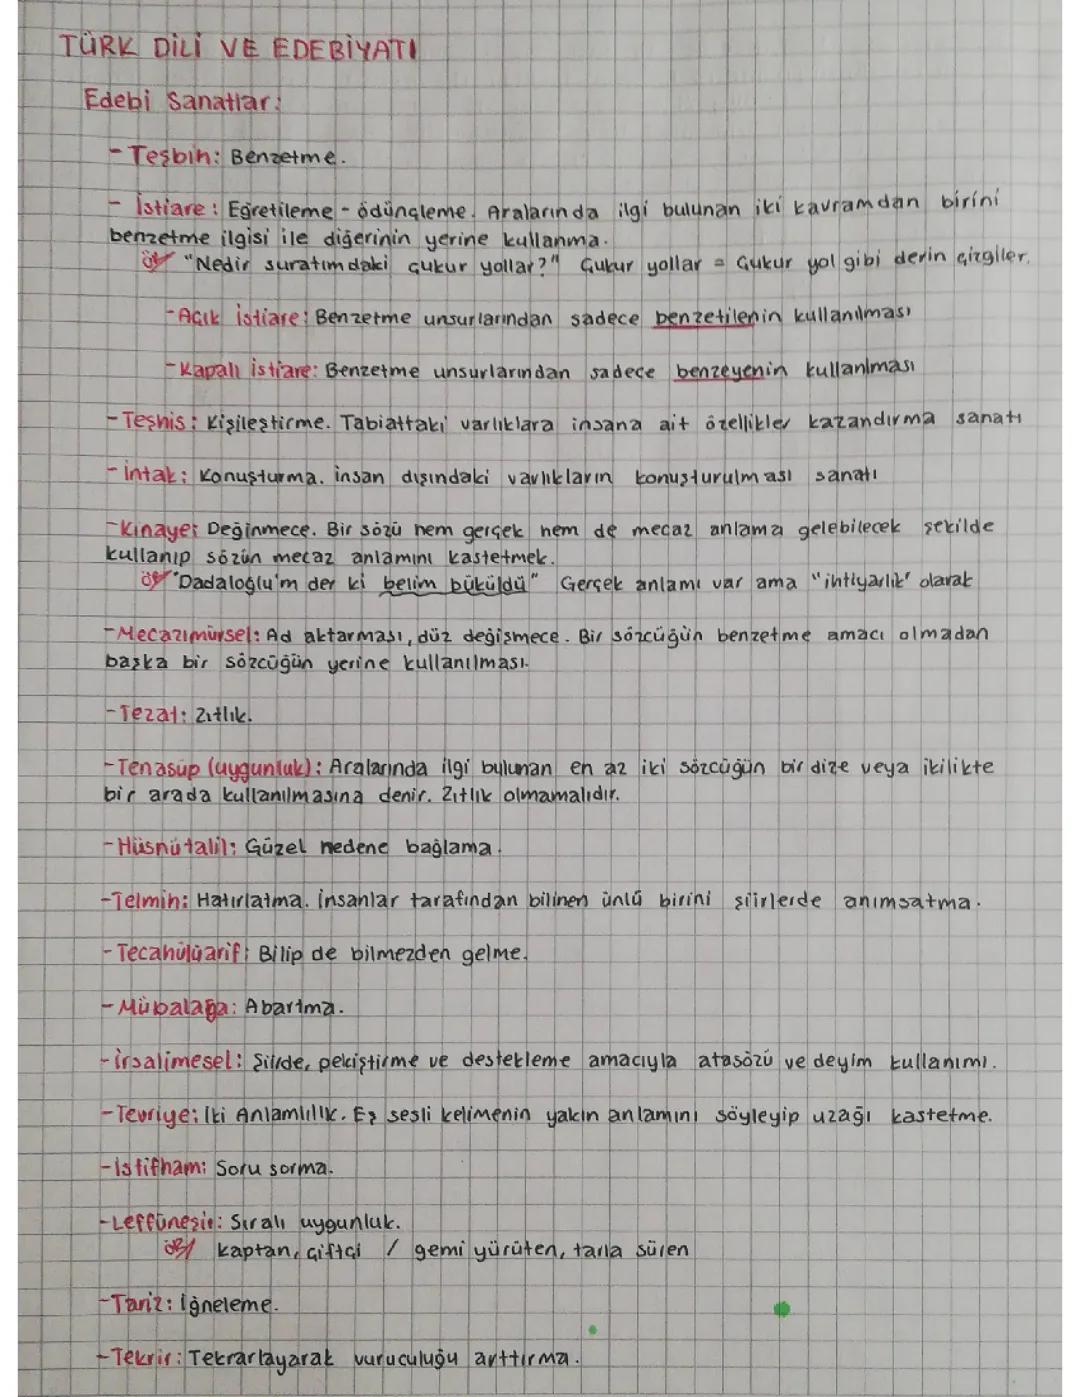 TÜRK DİLİ VE EDEBİYATI
Edebi Sanatlar:
- Teşbih: Benzetme.
- İstiare: Eğretileme - ödünçleme. Aralarında ilgi bulunan iki kavramdan birini
benzetme ilgisi ile diğerinin yerine kullanma.
ör/ "Nedir suratımdaki çukur yollar?" Çukur yollar = Çukur yol gibi derin çizgiler.
- Açık İstiare: Benzetme unsurlarından sadece benzetilenin kullanılması
- Kapalı istiare: Benzetme unsurlarından sadece benzeyenin kullanlması
- Teşhis: Kişileştirme. Tabiattaki varlıklara insana ait özellikler kazandırma sanatı
- İntak: Konuşturma. İnsan dışındaki varlıkların konuşturulması sanatı
- Kinaye: Değinmece. Bir sözü hem gerçek hem de mecaz anlama gelebilecek şekilde
kullanıp sözün mecaz anlamını kastetmek.
ör/ "Dadaloğlu'm der ki belim büküldü" Gerçek anlamı var ama "ihtiyarlık" olarak
- Mecazımürsel: Ad aktarması, düz değişmece. Bir sözcüğün benzetme amacı olmadan
başka bir sözcüğün yerine kullanılması.
- Tezat: Zıtlık.
- Tenasüp (uygunluk): Aralarında ilgi bulunan en az iki sözcüğün bir dize veya ikilikte
bir arada kullanılmasına denir. Zıtlık olmamalıdır.
- Hüsnütalil: Güzel nedene bağlama.
- Telmih: Hatırlatma. İnsanlar tarafından bilinen ünlü birini şiirlerde anımsatma.
- Tecahülüarif: Bilip de bilmezden gelme.
- Mübalağa: Abartma.
- İrsalimesel: Şiirde, pekiştirme ve destekleme amacıyla atasözü ve deyim kullanımı.
- Tevriye: İki Anlamlılık. Eş sesli kelimenin yakın anlamını söyleyip uzağı kastetme.
- İstifham: Soru sorma.
- Leffüneşir: Sıralı uygunluk.
ör/ kaptan, çiftçi / gemi yürüten, tarla süren
- Tariz: İğneleme.
- Tekrir: Tekrarlayarak vuruculuğu arttırma.